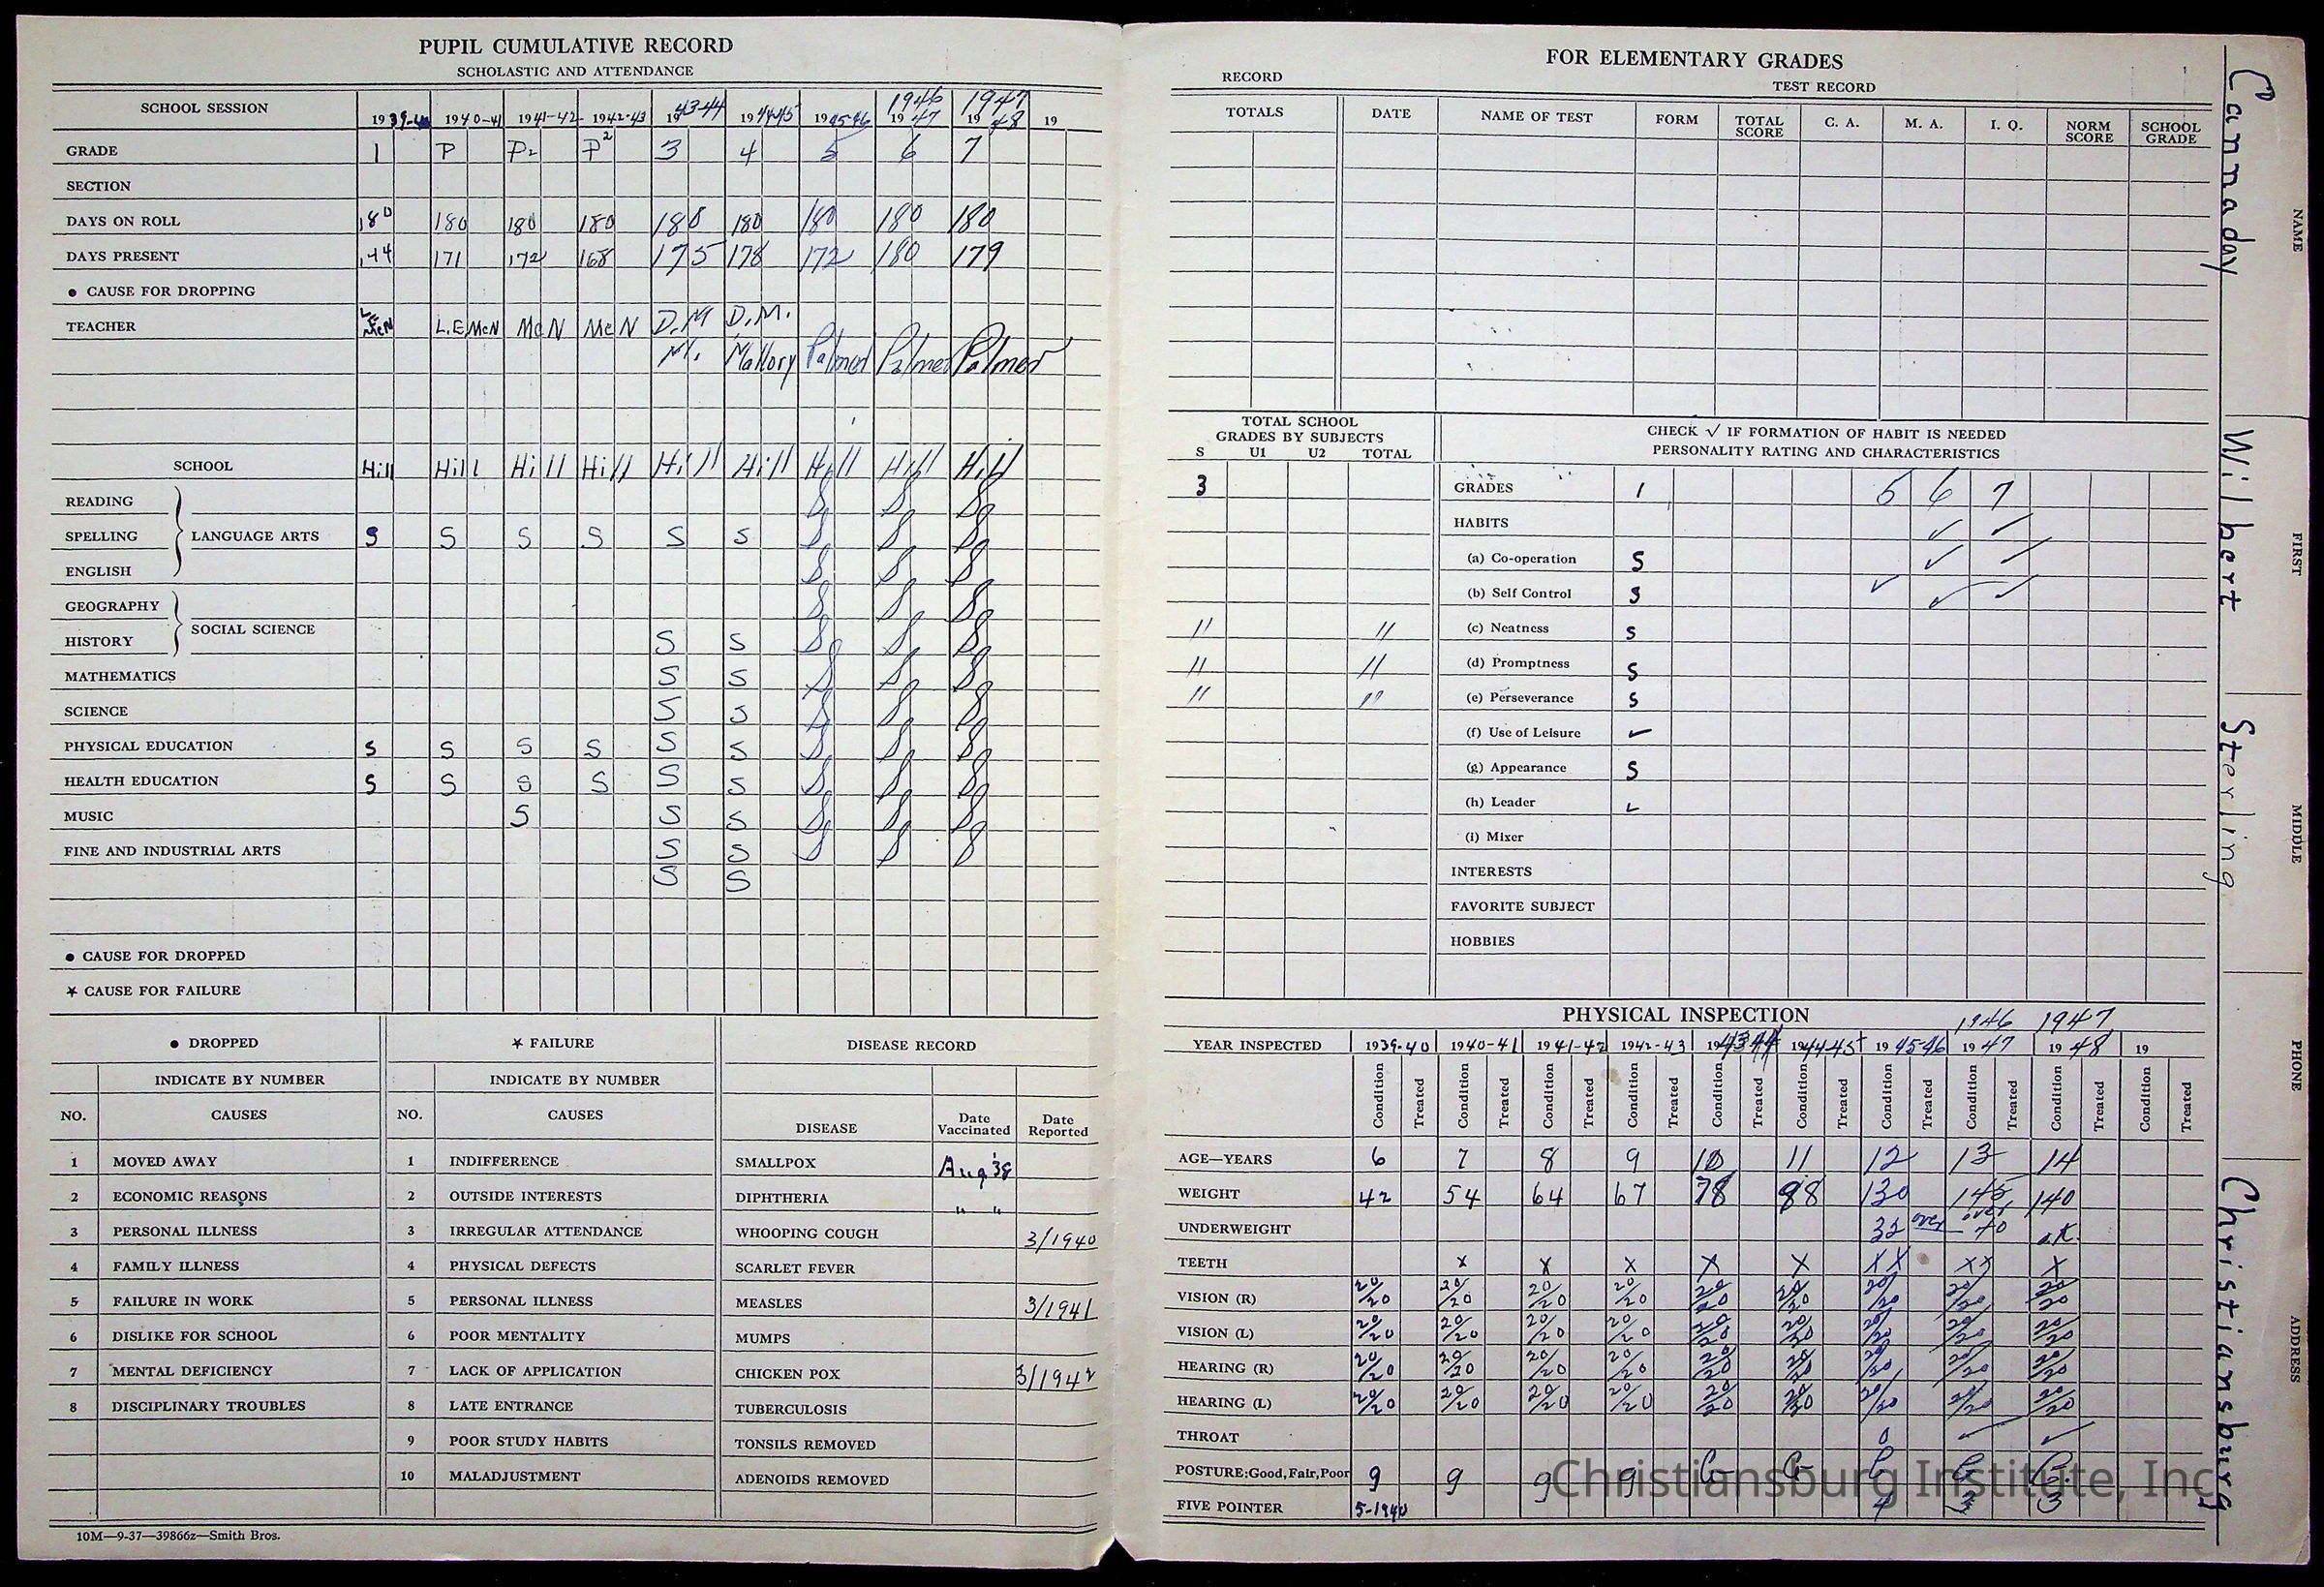 PUPIL CUMULATIVE RECORD
SCHOLASTIC AND ATTENDANCE
SCHOOL SESSION 1939-40 1940-41 1941-42 1942-43 1943-44 1944-45 1945-46 1946 1947 1947 1948 19
GRADE 1 P P2 P2 3 4 5 6 7
SECTION
DAYS ON ROLL 180 180 180 180 180 180 180 180 180
DAYS PRESENT 144 171 172 168 175 178 172 180 179
● CAUSE FOR DROPPING
TEACHER L.E. McN L.E. McN McN McN D.M. D.M.
M. Mallory Palmer Palmer Palmer
SCHOOL Hill Hill Hill Hill Hill Hill Hill Hill Hill
READING S S S
SPELLING LANGUAGE ARTS S S S S S S S S S
ENGLISH S S S
GEOGRAPHY S S S
HISTORY SOCIAL SCIENCE S S S S S
MATHEMATICS S S S S S
SCIENCE S S S S S
PHYSICAL EDUCATION S S S S S S S S S
HEALTH EDUCATION S S S S S S S S S
MUSIC S S S S S S
FINE AND INDUSTRIAL ARTS S S S S S
S S
● CAUSE FOR DROPPED
★ CAUSE FOR FAILURE
● DROPPED
INDICATE BY NUMBER
NO. CAUSES
1 MOVED AWAY
2 ECONOMIC REASONS
3 PERSONAL ILLNESS
4 FAMILY ILLNESS
5 FAILURE IN WORK
6 DISLIKE FOR SCHOOL
7 MENTAL DEFICIENCY
8 DISCIPLINARY TROUBLES
★ FAILURE
INDICATE BY NUMBER
NO. CAUSES
1 INDIFFERENCE
2 OUTSIDE INTERESTS
3 IRREGULAR ATTENDANCE
4 PHYSICAL DEFECTS
5 PERSONAL ILLNESS
6 POOR MENTALITY
7 LACK OF APPLICATION
8 LATE ENTRANCE
9 POOR STUDY HABITS
10 MALADJUSTMENT
DISEASE RECORD
DISEASE Date Vaccinated Date Reported
SMALLPOX Aug '38
DIPHTHERIA " "
WHOOPING COUGH 3/1940
SCARLET FEVER
MEASLES 3/1941
MUMPS
CHICKEN POX 3/1942
TUBERCULOSIS
TONSILS REMOVED
ADENOIDS REMOVED
10M—9-37—39866z—Smith Bros.
FOR ELEMENTARY GRADES
RECORD TEST RECORD
TOTALS DATE NAME OF TEST FORM TOTAL SCORE C. A. M. A. I. Q. NORM SCORE SCHOOL GRADE
TOTAL SCHOOL
GRADES BY SUBJECTS
S U1 U2 TOTAL
3
" "
" "
" "
CHECK √ IF FORMATION OF HABIT IS NEEDED
PERSONALITY RATING AND CHARACTERISTICS
GRADES 1 5 6 7
HABITS ✓ ✓
(a) Co-operation S ✓ ✓
(b) Self Control S ✓ ✓ ✓
(c) Neatness S
(d) Promptness S
(e) Perseverance S
(f) Use of Leisure ✓
(g) Appearance S
(h) Leader ✓
(i) Mixer
INTERESTS
FAVORITE SUBJECT
HOBBIES
PHYSICAL INSPECTION
YEAR INSPECTED 1939-40 1940-41 1941-42 1942-43 1943-44 1944-45 1945-46 1946 1947 1947 1948 19
Condition Treated Condition Treated Condition Treated Condition Treated Condition Treated Condition Treated Condition Treated Condition Treated Condition Treated Condition Treated
AGE—YEARS 6 7 8 9 10 11 12 13 14
WEIGHT 42 54 64 67 78 98 130 145 140
UNDERWEIGHT 32 over over 40 ok.
TEETH x x x x x xx xx x
VISION (R) 20/20 20/20 20/20 20/20 20/20 20/20 20/20 20/20 20/20
VISION (L) 20/20 20/20 20/20 20/20 20/20 20/20 20/20 20/20 20/20
HEARING (R) 20/20 20/20 20/20 20/20 20/20 20/20 20/20 20/20 20/20
HEARING (L) 20/20 20/20 20/20 20/20 20/20 20/20 20/20 20/20 20/20
THROAT 0 ✓ ✓
POSTURE: Good, Fair, Poor g g g g G G G G G
FIVE POINTER 5-1940 4 3 3
NAME Cannaday
FIRST Wilbert
MIDDLE Sterling
PHONE
ADDRESS Christiansburg
Christiansburg Institute, Inc.